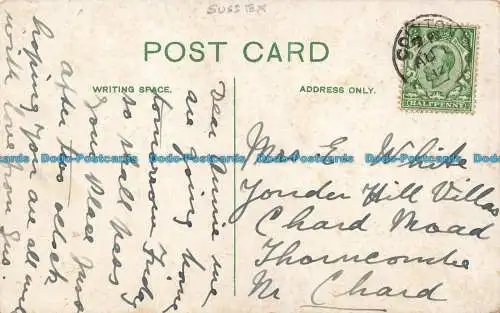 SUSSEX
POST CARD
WRITING SPACE.
ADDRESS ONLY.
HALFPENNY
Dear Annie we
are going home
tomorrow Friday
so shall pass
your place just
after two oclock
hoping you are all well
with love from
Mrs E White
Yonder Hill Villas
Chard Road
Thorncombe
Nr Chard
Dodo-Postcards Dodo-Postcards Dodo-Postcards Dodo-Postcards
Dodo-Postcards Dodo-Postcards Dodo-Postcards Dodo-Postcards